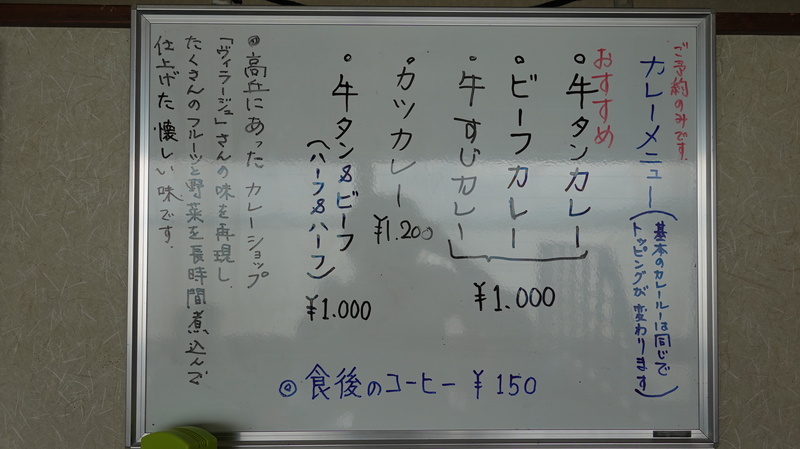 ご予約のみです。
カレーメニュー
(基本のカレールーは同じで
トッピングが変わります)
おすすめ
・牛タンカレー
・ビーフカレー
・牛すじカレー
¥1.000
・カツカレー ¥1.200
・牛タン&ビーフ
(ハーフ&ハーフ)
¥1.000
◎高丘にあったカレーショップ
「ヴィラージュ」さんの味を再現し、
たくさんのフルーツと野菜を長時間煮込んで
仕上げた懐しい味です。
◎食後のコーヒー ¥150